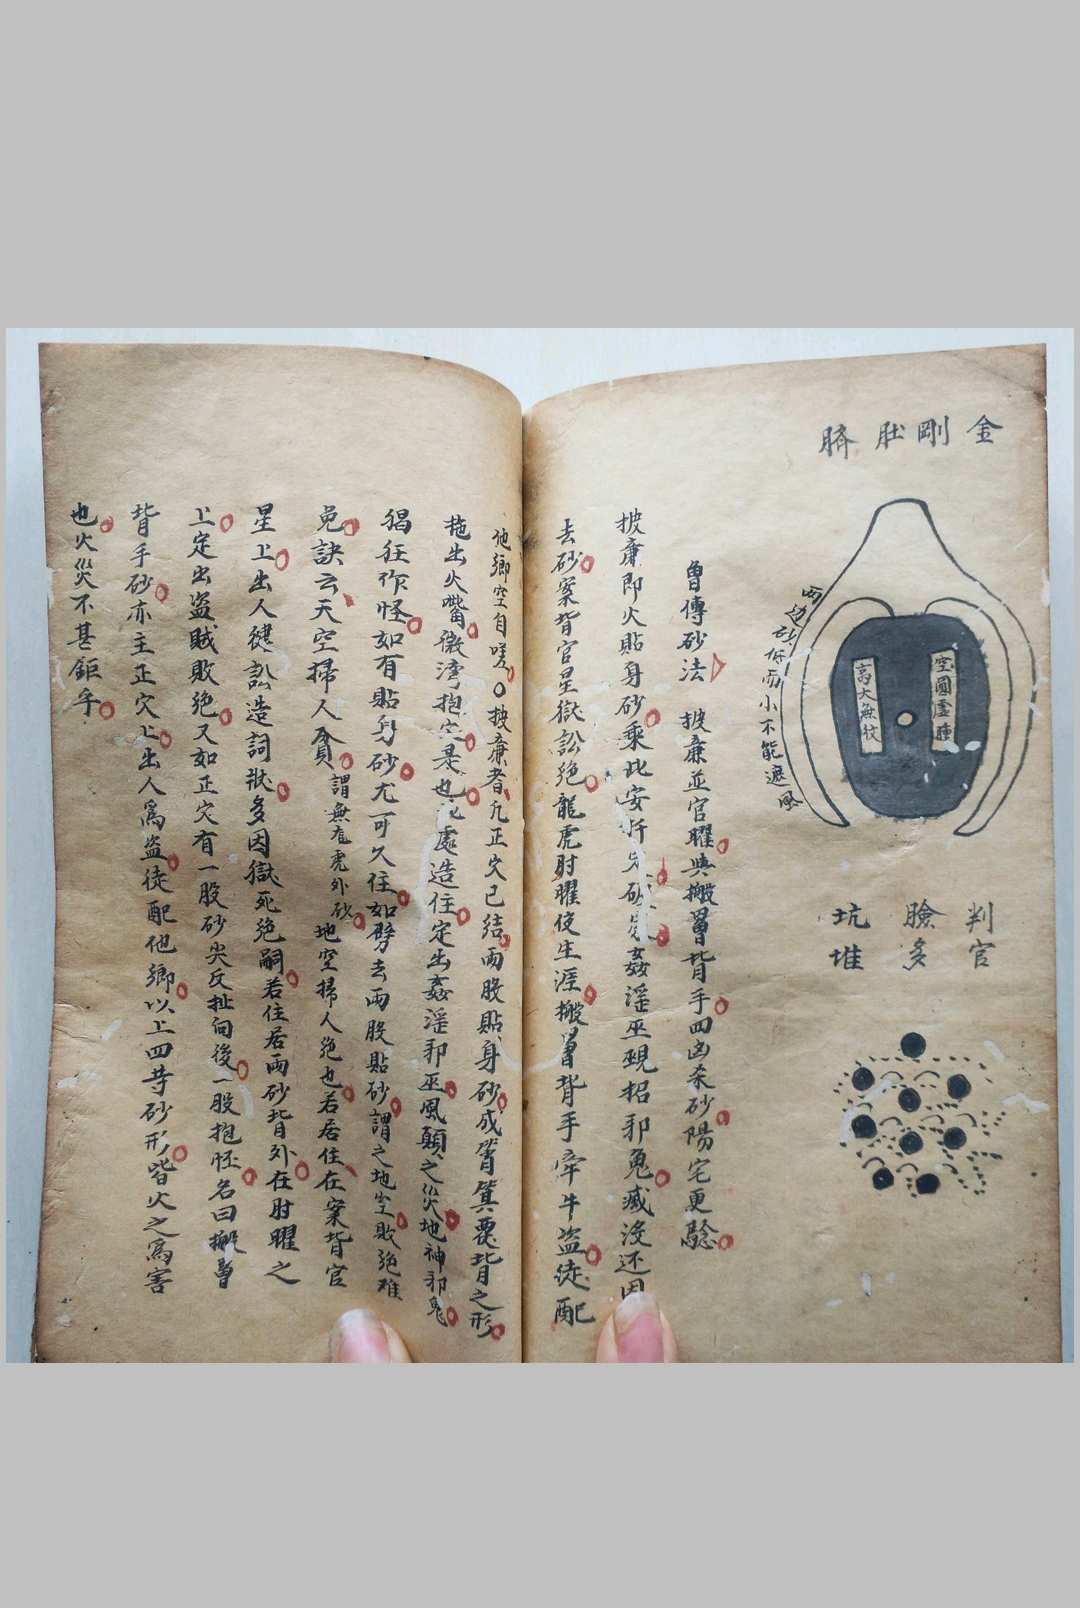 金剛肚臍
空圓虛腫
高大無紋
兩边砂低而小不能遮風
判官
臉多
坑堆
曾傳砂法 披廉並官曜與搬曾背手四凶杀砂陽宅更騐
披廉即火貼身砂乘此安扦姦淫巫覡招邪鬼滅没还因
去砂案背官星獄訟绝龍虎肘曜使生涯搬曾背手牵牛盜徒配
他鄉空自嘆○披廉者凡正穴已结兩股貼身砂成箕覆背之形
拖出火嘴微湾抱穴是也處造住定出姦淫邪巫風顛之災地神邪鬼
猖狂作怪如有貼身砂尤可久住如劈去兩股貼砂謂之地空敗绝难
免訣云天空掃人貧謂無龍虎外砂地空掃人绝也若居住在案背官
星上出人健訟造詞狀多因獄死绝嗣若住居兩砂背外在肘曜之
上定出盜贼敗绝又如正穴有一股砂尖反扯向後一股抱怪名曰搬曾
背手砂亦主正穴上出人為盜徒配他鄉以上四等砂形皆火之為害
也火災不甚鉅乎